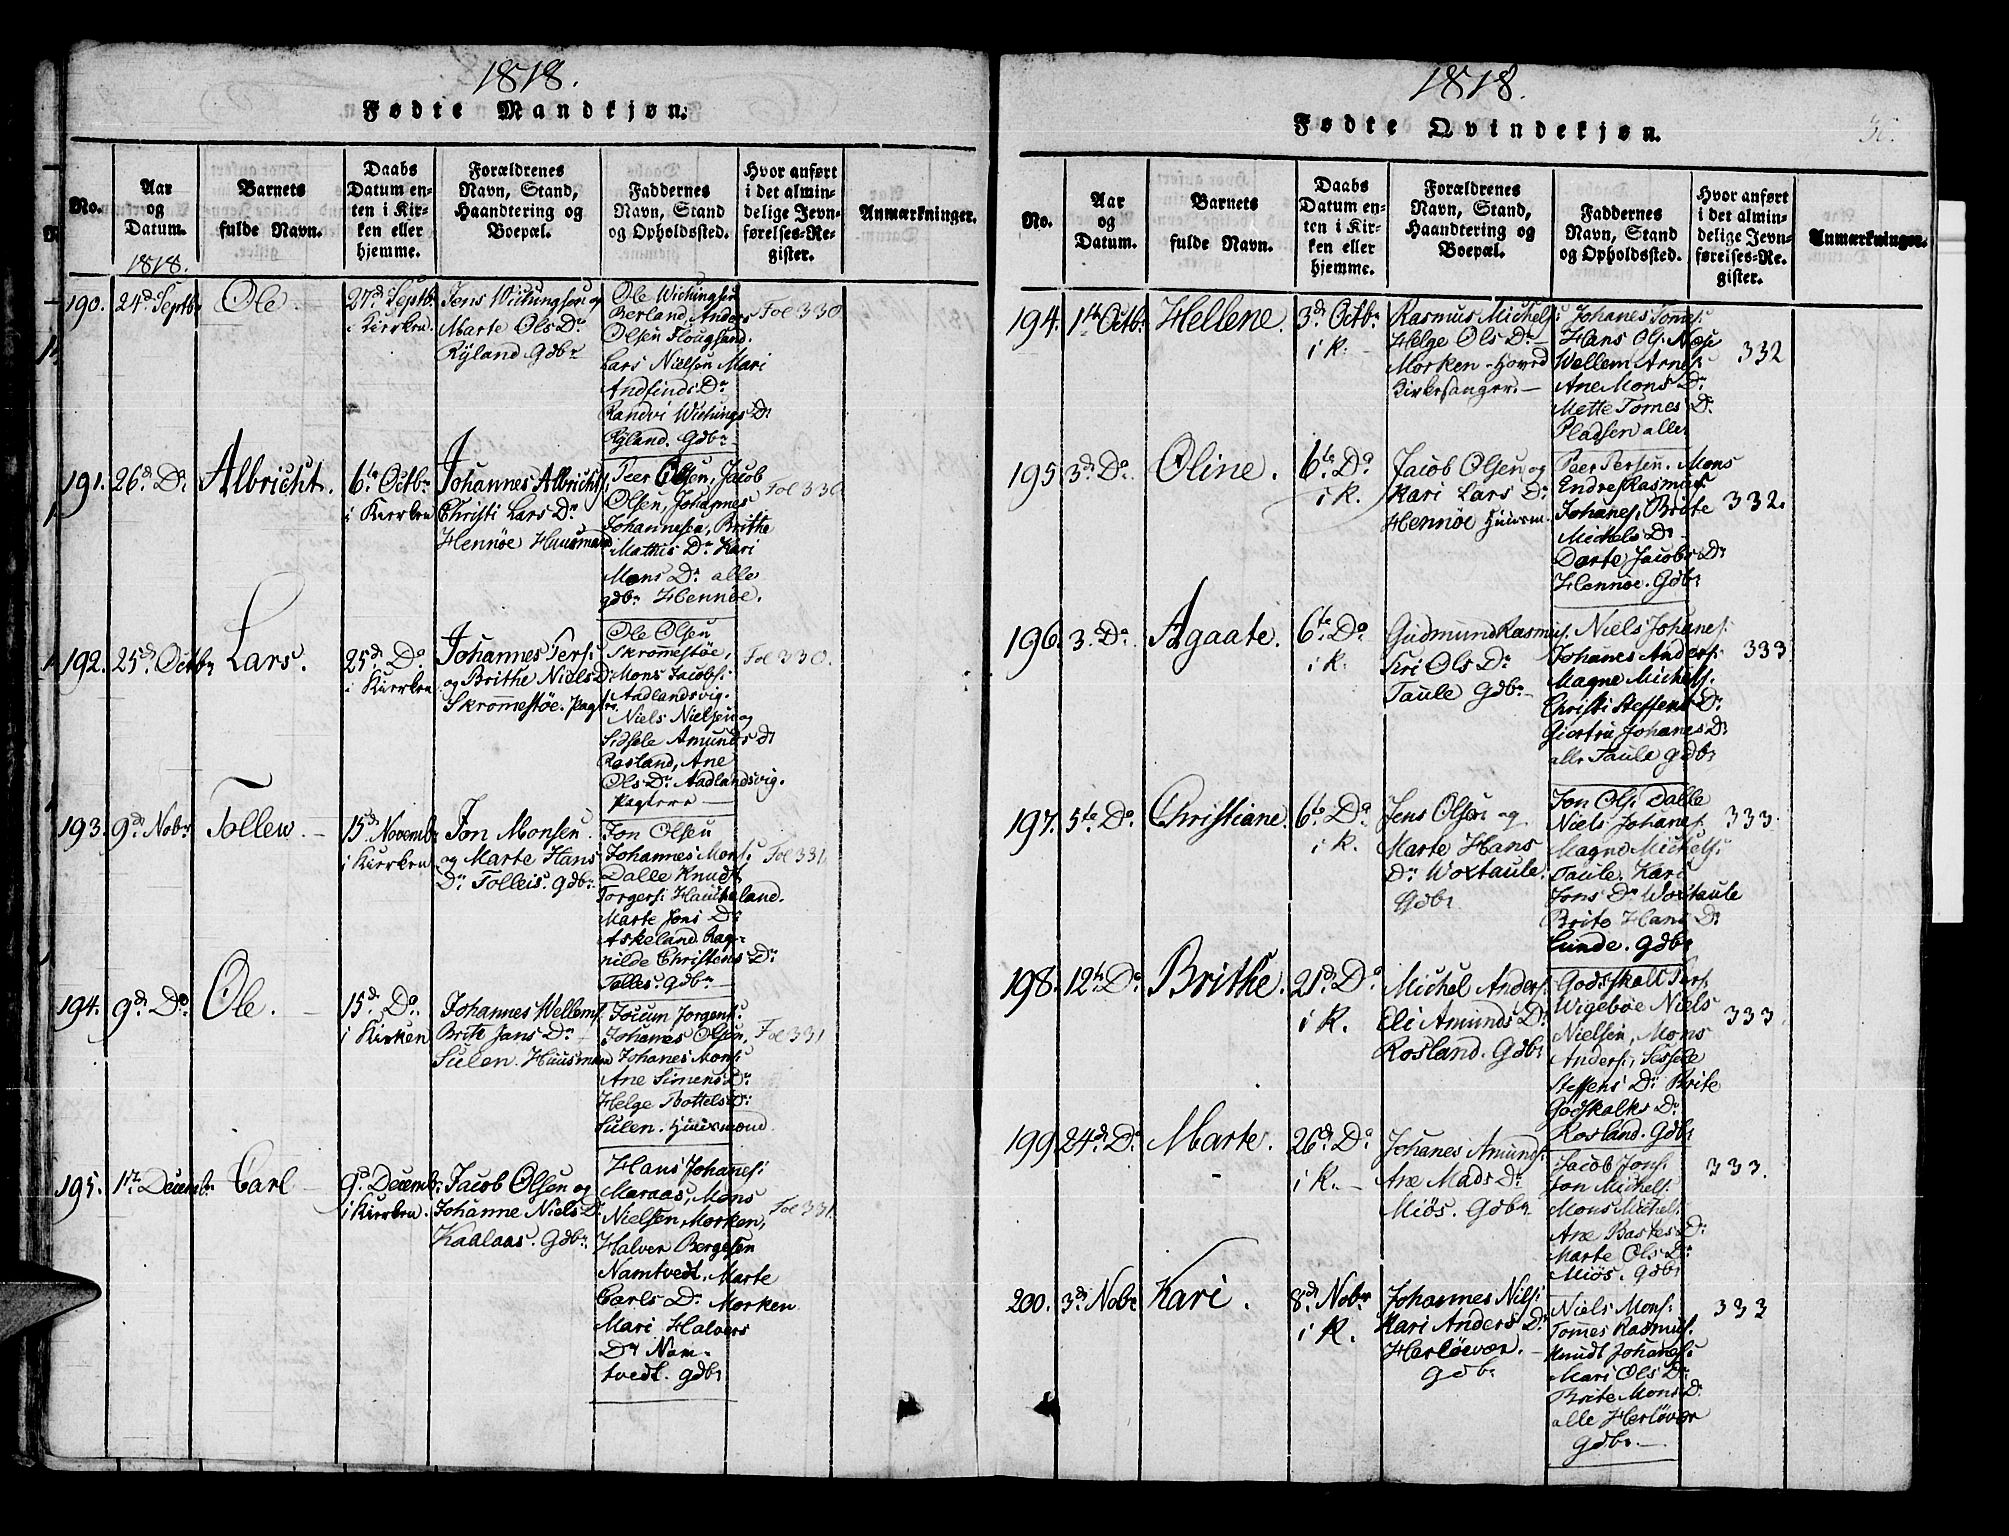 1818.
Fødte Mandkjøn.
No.
Aar
og
Datum.
1818.
Barnets
fulde Navn.
Daabs
Datum en-
ten i Kir-
ken eller
hjemme.
Forældrenes
Navn, Stand,
Haandtering og
Boepæl.
Faddernes
Navn, Stand
og Opholdssted.
Hvor anført
i det almin-
delige Jevn-
førelses-Re-
gister.
Anmærkninger.
190. 24d Septbr
Ole
27d Septb.
i Kirrken.
Jens Wichingsen og
Marte Ols Dr
Ryland Gdbr
Ole Wichingsen
Berland, Anders
Olsen Flougsand.
Lars Nielsen Mari
Andfinds Dr
Randvi Wichings Dr
Ryland. Gdbr
Fol 330.
191. 26d Do
Albricht.
6te Octbr
i Kirrken
Johannes Albrichts.
Christi Lars Dr
Hennøe Huusmand
Peer Olsen, Jacob
Olsen, Johannes
Johannessen, Brithe
Mathis Dr Kari
Mons Dr alle
gdbr Hennøe.
Fol 330
192. 25d Octbr
Lars.
25d Do
i Kirrken
Johannes Pers:
og Brithe Niels Dr
Skromestøe. Pagter
Ole Olsen
Skromestøe,
Mons Jacobs:
Aadlandsvig.
Niels Nielsen og
Sidsele Amunds Dr
Rosland, Ane
Ols Dr Aadlandsvig.
Pagtere
Fol 330.
193. 9d Nobr
Tollew
15d Novembr
i Kirrken
Jon Monsen
og Marte Hans
Dr Tolleis. gdbr
Jon Olsen
Johannes Mons:
Dalle Knudt
Torgers: Haucheland.
Marte Jons Dr
Askeland. Rag-
nilde Christens Dr
Tolles. gdbr
Fol 331.
194. 9d Do
Ole.
15d Do
i Kirken
Johannes Wellems.
Brite Jans Dr
Sulen. Huusmand
Jocum Jorgens:
Johanes Olsen,
Johanes Mons:
Ane Simens Dr
Helge Bottels Dr
Sulen. Huusmænd.
Fol 331
195. 1te Decembr
Carl
9d Decembr
i Kirrken.
Jacob Olsen og
Johanne Niels D.
Kaalaas. Gdbr
Hans Johanes:
Maraas, Mons
Nielsen, Morken,
Halver Bergesen
Namtvedt, Marte
Carls Dr Morken
Mari Halvers
Dr Nam-
tvedt. gdbr
Fol 331.
1818.
Fødte Qvindekjøn.
No.
Aar
og
Datum.
Barnets
fulde Navn.
Daabs
Datum en-
ten i Kir-
ken eller
hjemme.
Forældrenes
Navn, Stand,
Haandtering og
Boepæl.
Faddernes
Navn, Stand
og Opholdssted.
Hvor anført
i det almin-
delige Jevn-
førelses-Re-
gister.
Anmærkninger.
194. 1te Octbr
Hellene.
3d Octbr
i k.
Rasmus Michels:
Helge Ols Dr
Morken
Kirkesanger.
Johanes Tomes:
Hans Ols: Næse
Wellem Arnes:
Ane Mons Dr
Mette Tomes D.
Pladsen alle
332
195 3d Do
Oline.
6te Do
i k.
Jacob Olsen og
Kari Lars Dr
Hennøe Huusm.
Peer Persen. Mons
Endres Rasmus
Johanes, Brite
Michels Dr
Darte Jacobs Dr
Hennøe. Gdbr
332.
196 3. Do
Agaate.
6te Do
i k.
Gudmund Rasmus.
Siri Ols Dr
Taule Gdbr
Niels Johanes:
Johanes Anders:
Magne Michels:
Christi Steffens Dr
Giertru Johanes Dr
alle Taule gdbr
333
197. 5te Do
Christiane.
6te Do
i k.
Jens Olsen og
Marte Hans
Dr Woxtaule.
Gdbr
Jon Ols: Dalle
Niels Johanes.
Magne Michels:
Taule. Kari
Jons Dr Woxtaule
Brite Hans Dr
Lunde. gdbr
333.
198. 12te Do
Brithe.
25d Do
i k.
Michel Anders.
Eli Amunds Dr
Rosland. Gdbr
Godskalk Pers.
Wigebøe Niels
Nielsen, Mons
Anders:, Sessele
Steffens Dr Brite
Godskalks Dr
Rosland. Gdbr
333
199 24d Do
Marte.
26d Do
i k.
Johanes Amunds:
Ane Mads Dr
Miøs. Gdbr
Jacob Jons:
Jon Michels.
Mons Michels.
Ane Bastes Dr
Marte Ols Dr
Miøs. Gdbr
333.
200. 3d Nobr
Kari.
8d Nobr
i k.
Johannes Nils:
Kari Anders Dr
Herløevær.
Gdbr
Niels Mons:
Tomes Rasmus.
Knudt Johanes:
Mari Ols Dr
Brite Mons Dr
alle Herløvær
Gdbr
333